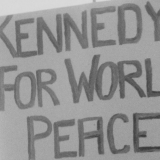 KENNEDY
FOR WORL
PEACE